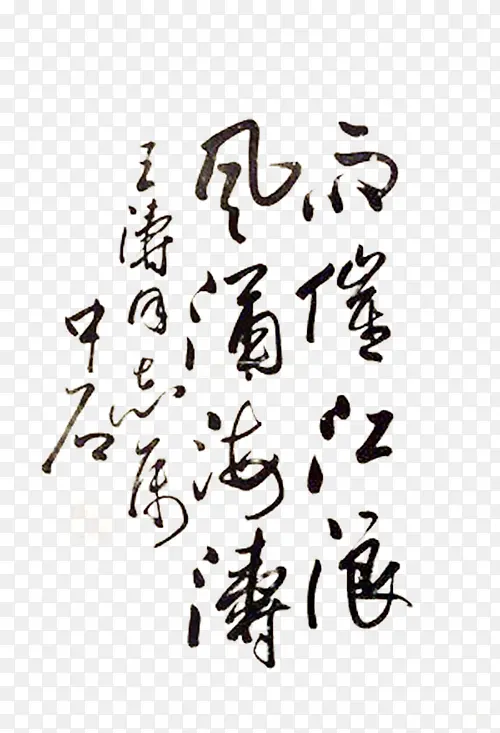 雨催江浪
风海濤
王濤同志属
中石